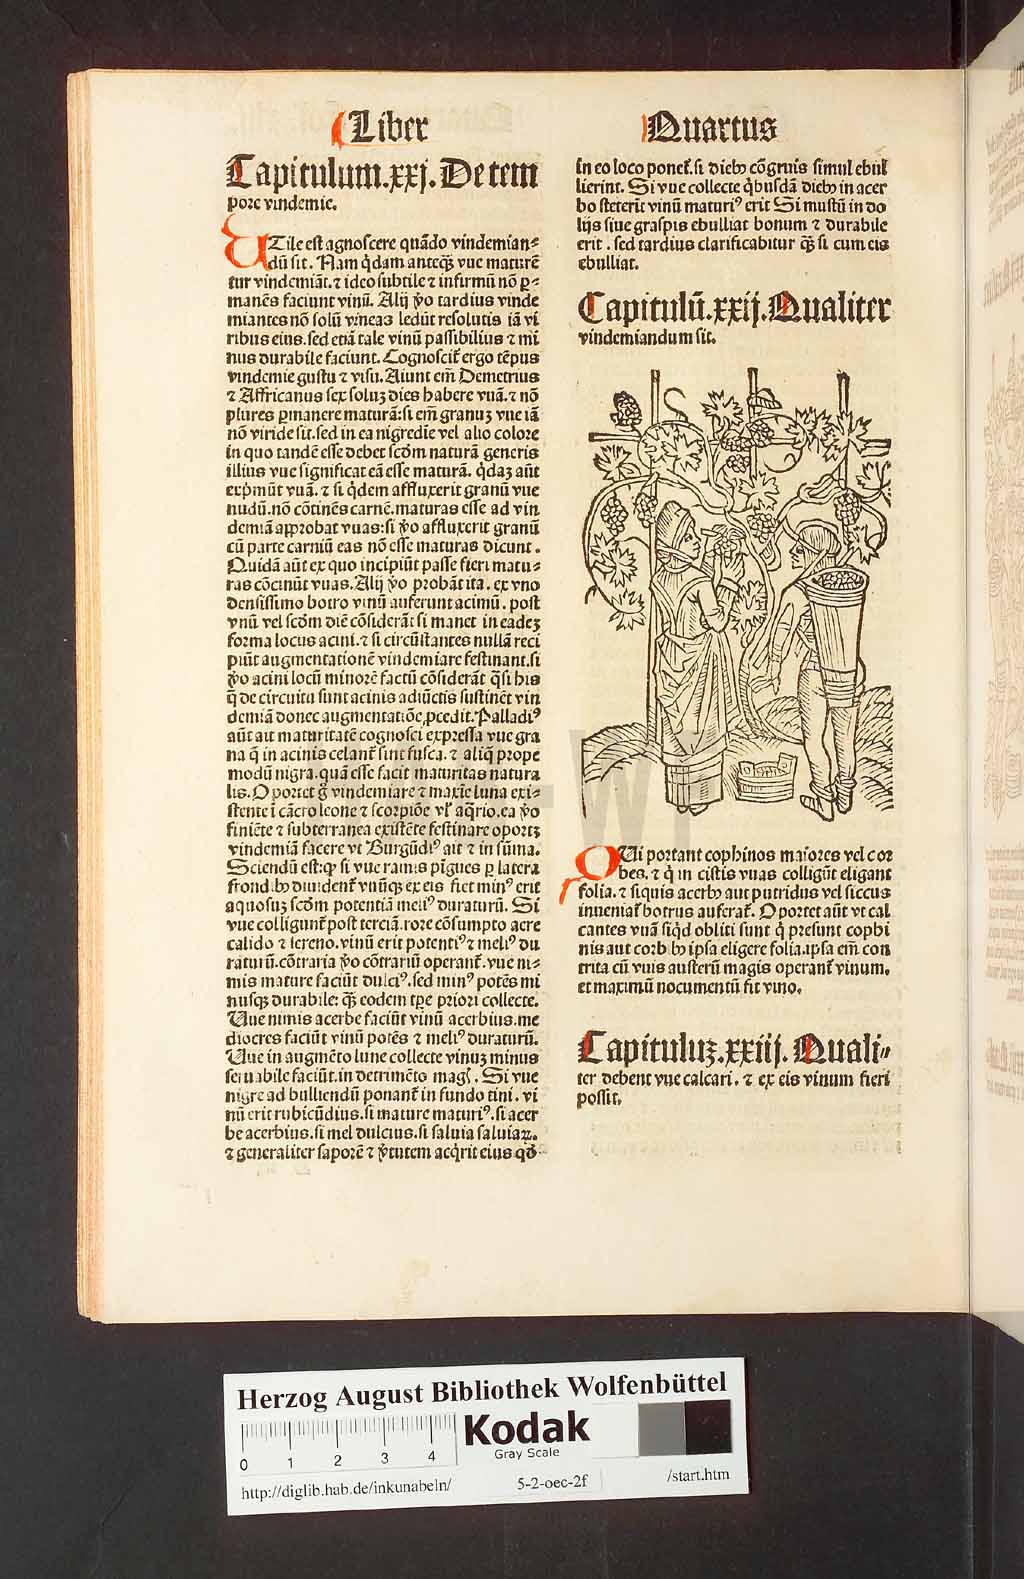 Liber
Capitulum.xxj. De tem
pore vindemie.
UTile est agnoscere quādo vindemian⸗
dū sit. Nam q̇dam anteq̄ʒ vue maturē
tur vindemiāt. ⁊ ideo subtile ⁊ infirmū nō ꝑ⸗
manēs faciunt vinū. Alij v̊o tardius vinde
miantes nō solū vineaʒ ledūt resolutis iā vi
ribus eius. sed etiā tale vinū passibilius ⁊ mi
nus durabile faciunt. Cognoscit̄ ergo tēpus
vindemie gustu ⁊ visu. Aiunt em̄ Demetrius
⁊ Affricanus sex soluʒ dies habere vuā. ⁊ nō
plures ꝑmanere maturā: si em̄ granuʒ vue iā
nō viride sit. sed in ea nigredīe vel alio colore
in quo tandē esse debet scd̄m naturā generis
illius vue significat eā esse maturā. q̇daʒ aūt
exp̄mūt vuā. ⁊ si q̇dem affluxerit granū vue
nudū. nō cōtinēs carnē. maturas esse ad vin
demiā approbat vuas: si v̊o affluxerit granū
cū parte carniū eas nō esse maturas dicunt.
Quidā aūt ex quo incipiūt passe fieri matu⸗
ras cōcinūt vuas. Alij v̊o probāt ita. ex vno
densissimo botro vinū auferunt acimū. post
vnū vel scd̄m diē cōsiderāt si manet in eadeʒ
forma locus acini. ⁊ si circūstantes nullā reci
piūt augmentationē vindemiare festinant. si
v̊o acini locū minorē factū cōsiderāt q̇si his
q̄ de circuitu sunt acinis adiūctis sustinēt vin
demiā donec augmentatiōe ꝓcedit. Palladiꝰ
aūt ait maturitatē cognosci expressa vue gra
na q̄ in acinis celant̄ sint fusca. ⁊ aliq̄ prope
modū nigra. quā esse facit maturitas natura
lis. Oportet g̊ vindemiare ⁊ maxīe luna exi⸗
stente ī cācro leone ⁊ scorpiōe vl̓ aq̄rio. ea v̊o
finiēte ⁊ subterranea existēte festinare oportʒ
vindemiā facere vt Burgūdiꝰ ait ⁊ in sūma.
Sciendū est: ꝙ si vue ramis pīgues ꝑ latera
frond. bʒ diuident̄ vnūqʒ ex eis fiet minꝰ erit
aquosuʒ scd̄m potentiā meliꝰ duraturū. Si
vue colligunt̄ post terciā. rore cōsumpto aere
calido ⁊ sereno. vinū erit potentiꝰ ⁊ meliꝰ du
raturū. cōtraria v̊o cōtrariū operant̄. vue ni⸗
mis mature faciūt dulciꝰ. sed minꝰ potēs mi
nusqʒ durabile: q̄ʒ eodem tp̄e priori collecte.
Uue nimis acerbe faciūt vinū acerbius. me
diocres faciūt vinū potēs ⁊ meliꝰ duraturū.
Uue in augmēto lune collecte vinuʒ minus
seruabile faciūt. in detrimēto mag̓. Si vue
nigre ad bulliendū ponant̄ in fundo tini. vi
nū erit rubicūdius. si mature maturiꝰ. si acer
be acerbius. si mel dulcius. si saluia saluiaꝝ.
⁊ generaliter saporē ⁊ v̓tutem acq̇rit eius qd̄
Quartus
in eo loco ponet̄. si diebʒ cōgruis simul ebul
lierint. Si vue collecte q̇busdā diebʒ in acer
bo steterīt vinū maturiꝰ erit Si mustū in do
lijs siue graspis ebulliat bonum ⁊ durabile
erit. sed tardius clarificabitur q̄ʒ si cum eis
ebulliat.
Capitulū.xxij. Qualiter
vindemiandum sit.
QUi portant cophinos maiores vel cor
bes. ⁊ q̇ in cistis vuas colligūt eligant
folia. ⁊ siquis acerbʒ aut putridus vel siccus
inueniat̄ botrus auferat̄. Oportet aūt vt cal
cantes vuā siq̇d obliti sunt q̇ presunt cophi
nis aut corb bʒ ipsa eligere folia. ipsa em̄ con
trita cū vuis austerū magis operant̄ vinum.
et maximū nocumentū fit vino.
Capituluʒ.xxiij. Quali⸗
ter debent vue calcari. ⁊ ex eis vinum fieri
possit.
Herzog August Bibliothek Wolfenbüttel
0 1 2 3 4
Kodak
Gray Scale
http://diglib.hab.de/inkunabeln/ 5-2-oec-2f /start.htm